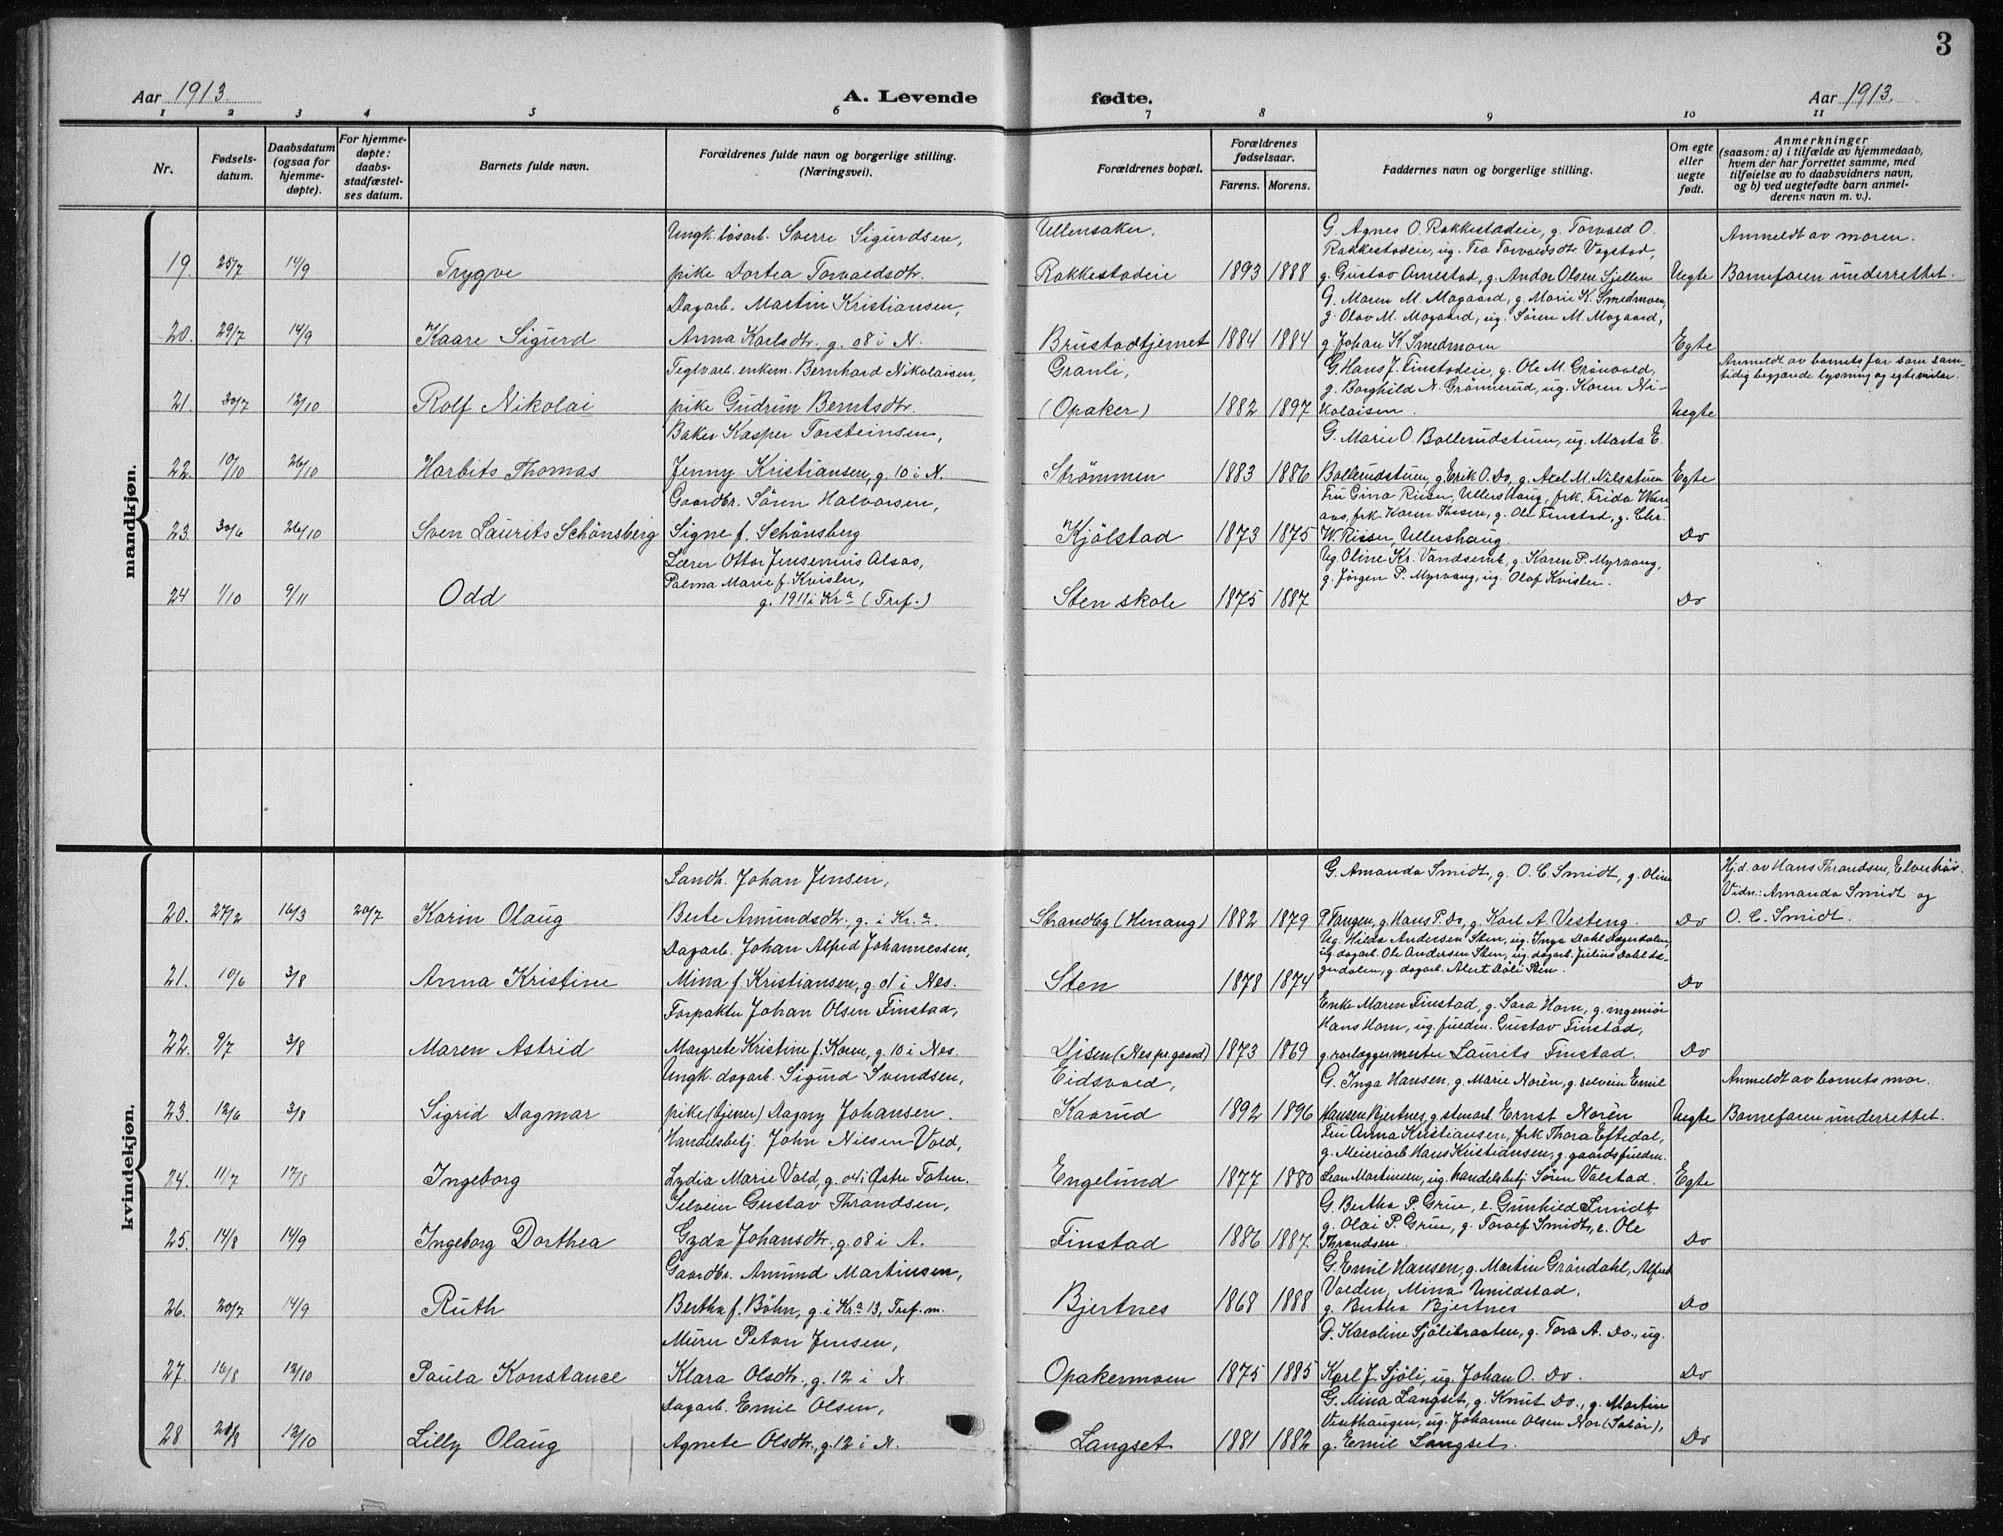 3
Aar 1913. A. Levende fødte. Aar 1913.
1 2 3 4 5 6 7 8 9 10 11
Nr.
Fødsels-
datum.
Daabsdatum
(ogsaa for
hjemme-
døpte).
For hjemme-
døpte:
daabs-
stadfæstel-
ses datum.
Barnets fulde navn.
Forældrenes fulde navn og borgerlige stilling.
(Næringsvei).
Forældrenes bopæl.
Forældrenes
fødselsaar.
Farens. Morens.
Faddernes navn og borgerlige stilling.
Om egte
eller
uegte
født.
Anmerkninger
(saasom: a) i tilfælde av hjemmedaab,
hvem der har forrettet samme, med
tilføielse av to daabsvidners navn,
og b) ved uegtefødte barn anmel-
derens navn m. v.).
mandkjøn.
19. 25/7 14/9 Trygve
Ungk. løsarb. Sverre Sigurdsen,
pike Dortea Torvaldsdtr.
Ullensaker.
Rakkestadeie 1893 1888
G. Agnes O. Rakkestadeie, g. Torvald O.
Rakkestadeie, ug. Tea Torvaldsdtr. Vagstad,
g. Gustav Arnestad, g. Andor Olsen Sjellen
Uegte
Anmeldt av moren.
Barnefaren underrettet.
20. 29/7 14/9 Kaare Sigurd
Dagarb. Martin Kristiansen,
Anna Karlsdtr., g. 08 i N.
Brustadtjernet 1884 1884
G. Maren M. Mogaard, g. Marie K. Smedmoen,
g. Olav M. Mogaard, ug. Søren M. Mogaard,
g. Johan K. Smedmoen
Egte
21. 30/7 12/10 Rolf Nikolai
Teglvarb. enkem. Bernhard Nikolaisen,
pike Gudrun Berntsdtr.
Granli,
(Opaker) 1882 1897
G. Hans J. Finstadeie, g. Ole M. Grønvold,
g. Borghild N. Grønnerud, ug. Karen Ni-
kolaisen.
Uegte
Anmeldt av barnets far som sam-
tidig begjærde lysning og egtevielse.
22. 10/10 26/10 Harbits Thomas
Baker Kasper Torsteinsen,
Jenny Kristiansen, g. 10 i N.
Strømmen 1883 1886
G. Marie O. Bollerudstuen, ug. Marta E.
Bollerudstuen, g. Erik O. Do, g. Axel M. Nilsstuen
Egte
23. 30/6 26/10 Sven Laurits Schönsberg
Gaardbr. Søren Halvorsen,
Signe f. Schönsberg
Kjølstad 1873 1875
Fru Gina Riiser, Ullershaug, frk. Frida
frk. Karen Thesen, g. Ole Finstad, g. Chr.
W. Riiser, Ullershaug
Do
24 1/10 9/11 Odd
Lærer Ottar Jensenius Alsos,
Palma Marie f. Kvisler,
g. 1911 i Kr.a (Tref.)
Sten skole 1875 1887
Ug. Oline Kr. Vandsemb, g. Karen P. Myrvang,
g. Jørgen P. Myrvang, ug. Olaf Kvisler.
Do
kvindekjøn.
20. 27/2 16/3 20/7 Karin Olaug
Landh. Johan Jensen,
Berte Amundsdtr. g. i Kr.a.
Strandbg (Henaug) 1882 1879
G. Amanda Smidt, g. O. C. Smidt, g. Oline
P. Tangen, g. Hans P. Do, g. Karl A. Vesteng.
Do
Hjd. av Hans Thrandsen, Elverhøi.
Vidn.: Amanda Smidt og
O. C. Smidt.
21. 10/6 3/8 Anna Kristine
Dagarb. Johan Alfred Johannessen,
Mina f. Kristiansen, g. 01 i Nes.
Sten 1878 1874
Ug. Hilda Andersen Sten, ug. Inga Dahl Dagerdalen,
ug. dagarb. Ole Andersen Sten, ug. dagarb. Julius Dahl Da-
gerdalen, g. dagarb. Alert Døli Sten.
Do
22. 9/7 3/8 Maren Astrid
Forpakter Johan Olsen Finstad,
Margrete Kristine f. Koren, g. 10 i Nes.
Disen (Nes pr.gaard) 1873 1869
Enke Maren Finstad, g. Sara Horn, g. ingeniør
Hans Horn, ug. fuldm. Gustav Finstad,
g. rørlæggermester Laurits Finstad.
Do
23. 12/6 3/8 Sigrid Dagmar
Ungk. dagarb. Sigurd Svendsen,
pike (tjener) Dagny Johansen.
Eidsvold,
Kaarud 1892 1896
G. Inga Hansen, g. Marie Norén, g. selveier Emil
Hansen Bjertnes, g. stenarb. Ernst Norén
Uegte
Anmeldt av barnets mor.
Barnefaren underrettet.
24. 11/7 17/8 Ingeborg
Handelsbetj. John Nilsen Vold,
Lydia Marie Vold, g. 04 i Østre Toten.
Engelund 1877 1880
Fru Anna Kristiansen, frk Thora Eftedal,
g. Meieriarb Hans Kristiansen, g. gaardsfuldm.
Lean Martinsen, ug. handelsbetj. Søren Valstad.
Egte
25. 14/8 14/9 Ingeborg Dorthea
Selveier Gustav Thrandsen,
Gyda Johansdtr., g. 08 i A.
Finstad 1886 1887
G. Bertha P. Grue, e. Gunhild Smidt,
g. Olai P. Grue, g. Toralf Smidt, e. Ole
Thrandsen.
Do
26. 20/7 14/9 Ruth
Gaardbr. Amund Martinsen,
Bertha f. Böhn, g. i Kr.a 13, Tref. m.
Bjertnes 1868 1888
G. Emil Hansen, g. Martin Grøndahl, Alfred
Volden, Mina Unildstad,
g. Bertha Bjertnes
Do
27. 16/8 12/10 Paula Konstance
Murer Peton Jensen,
Klara Olsdtr., g. 12 i N.
Opakermoen 1875 1885
G. Karoline Sjølibraaten, g. Tora A. Do., ug.
Karl J. Sjøli, ug. Johan O. Do.
Do
28 28/8 12/10 Lilly Olaug
Dagarb. Emil Olsen,
Agnete Olsdtr., g. 12 i N.
Langset 1881 1882
G. Mina Langset, g. Knut Do., g. Martin
Venthaugen, ug. Johanne Olsen Nor (Solør),
g. Emil Langset.
Do